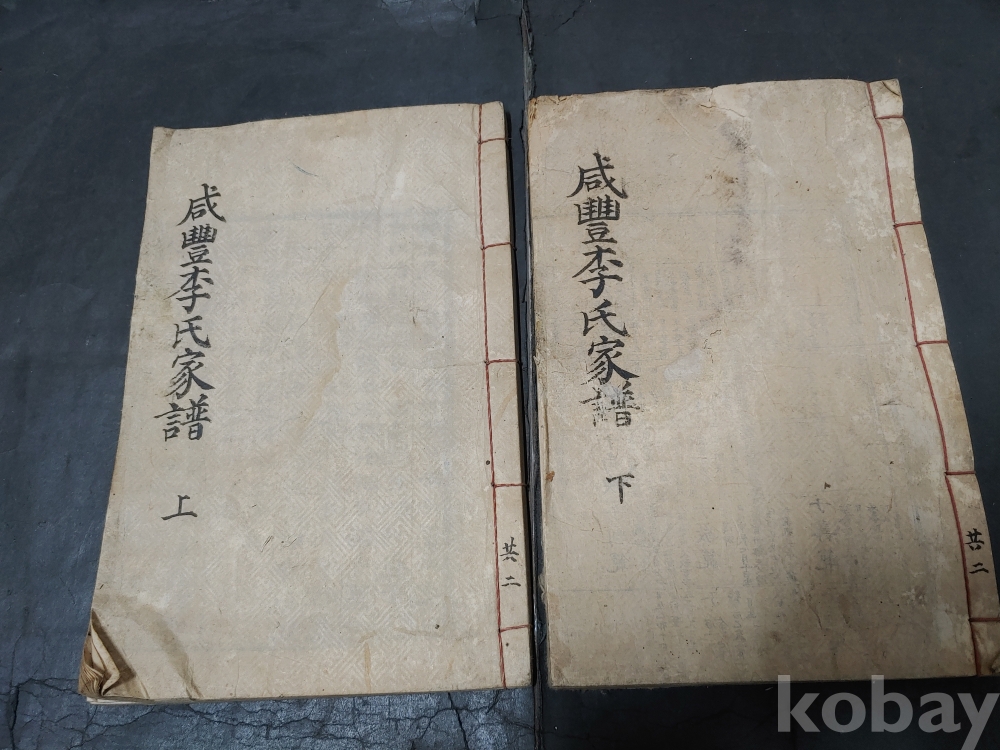 咸豐李氏家譜
上
共二
咸豐李氏家譜
下
共二
kobay